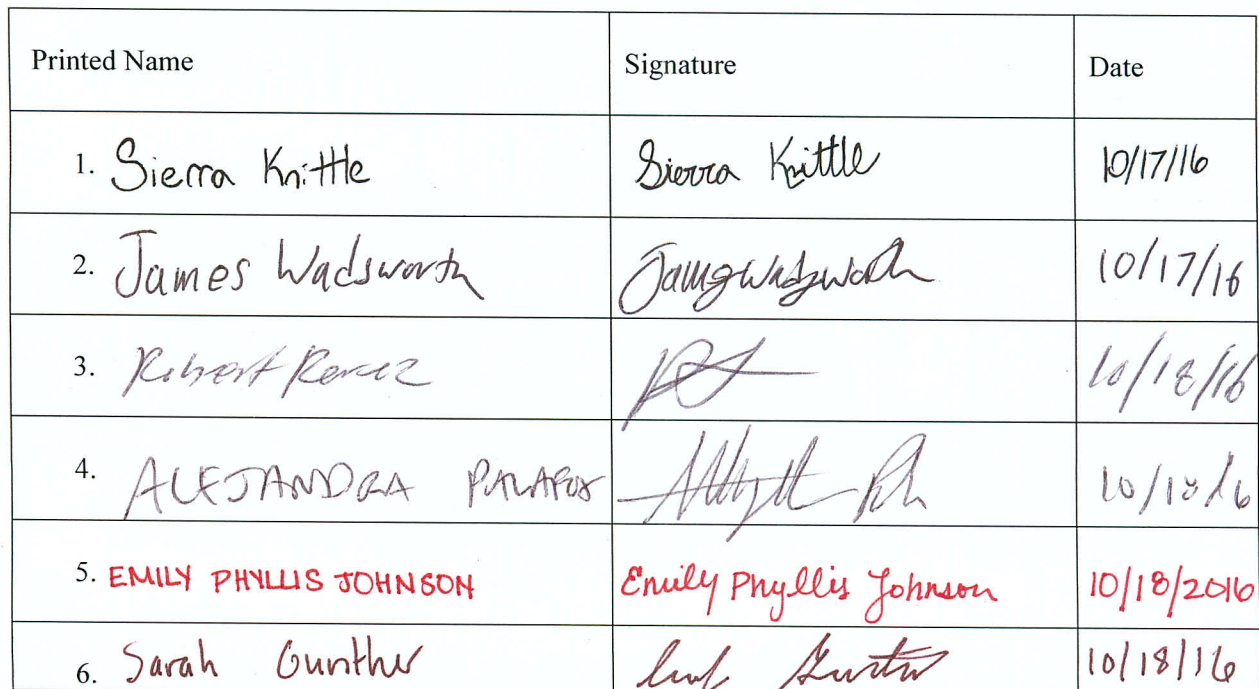 Printed Name Signature Date
1. Sierra Knittle Sierra Knittle 10/17/16
2. James Wadsworth James Wadsworth 10/17/16
3. Robert 10/18/16
4. ALEJANDRA PALAFOX 10/18/16
5. EMILY PHYLLIS JOHNSON Emily Phyllis Johnson 10/18/2016
6. Sarah Gunther 10/18/16